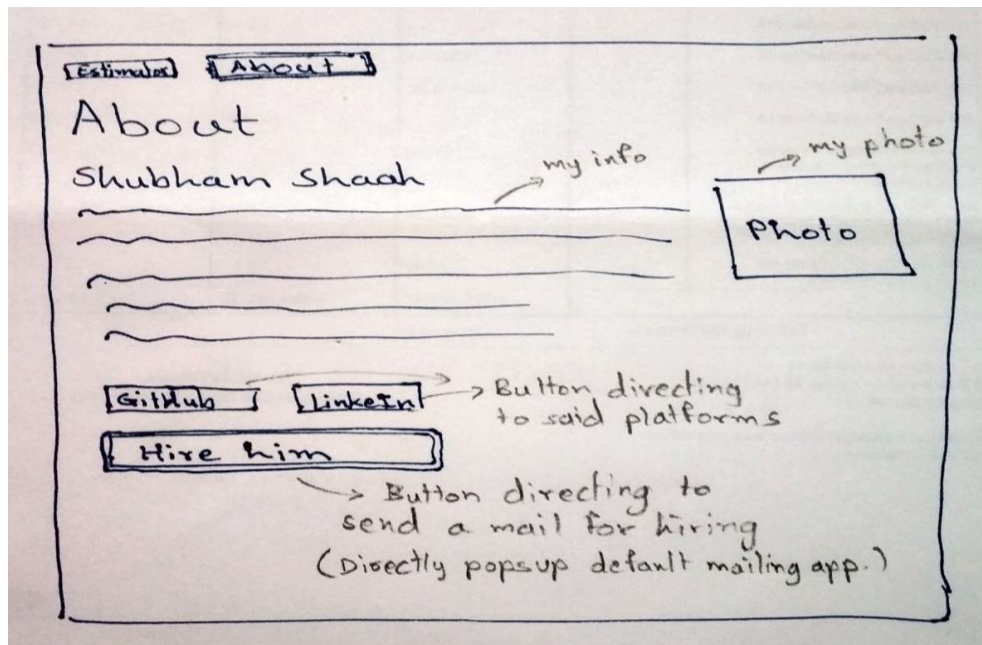 Estimator About
About
Shubham Shaah
my info
my photo
Photo
GitHub LinkeIn
Button directing
to said platforms
Hire him
Button directing to
send a mail for hiring
(Directly popsup default mailing app.)